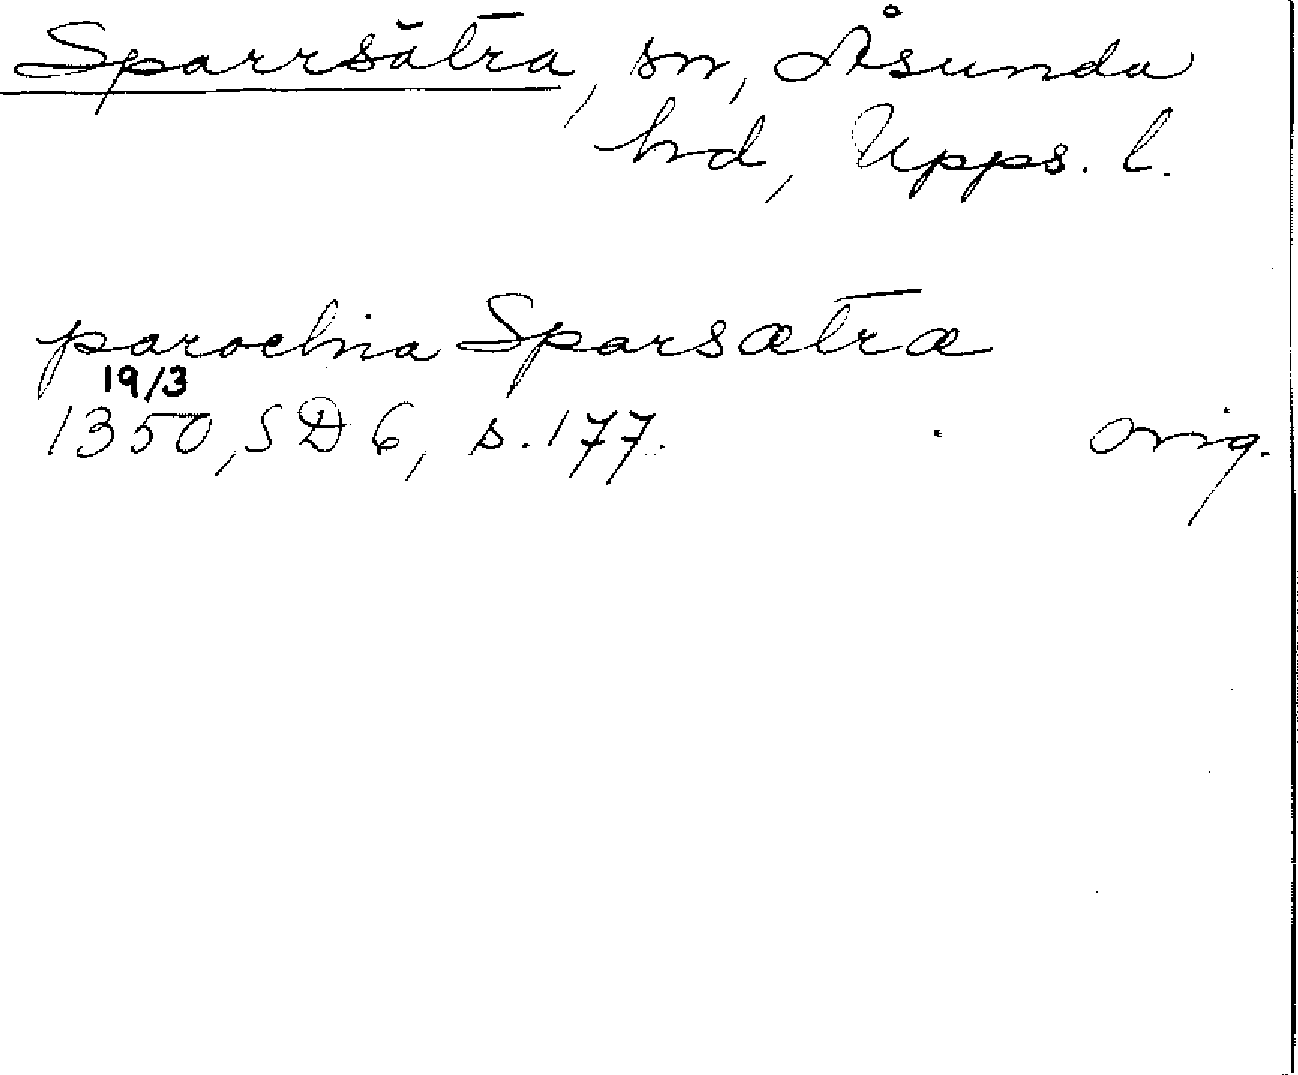 Sparrsätra, sn, Åsunda
hd, Upps. l.
parochia Sparsætra
19/3
1350, SD 6, s. 177. orig.